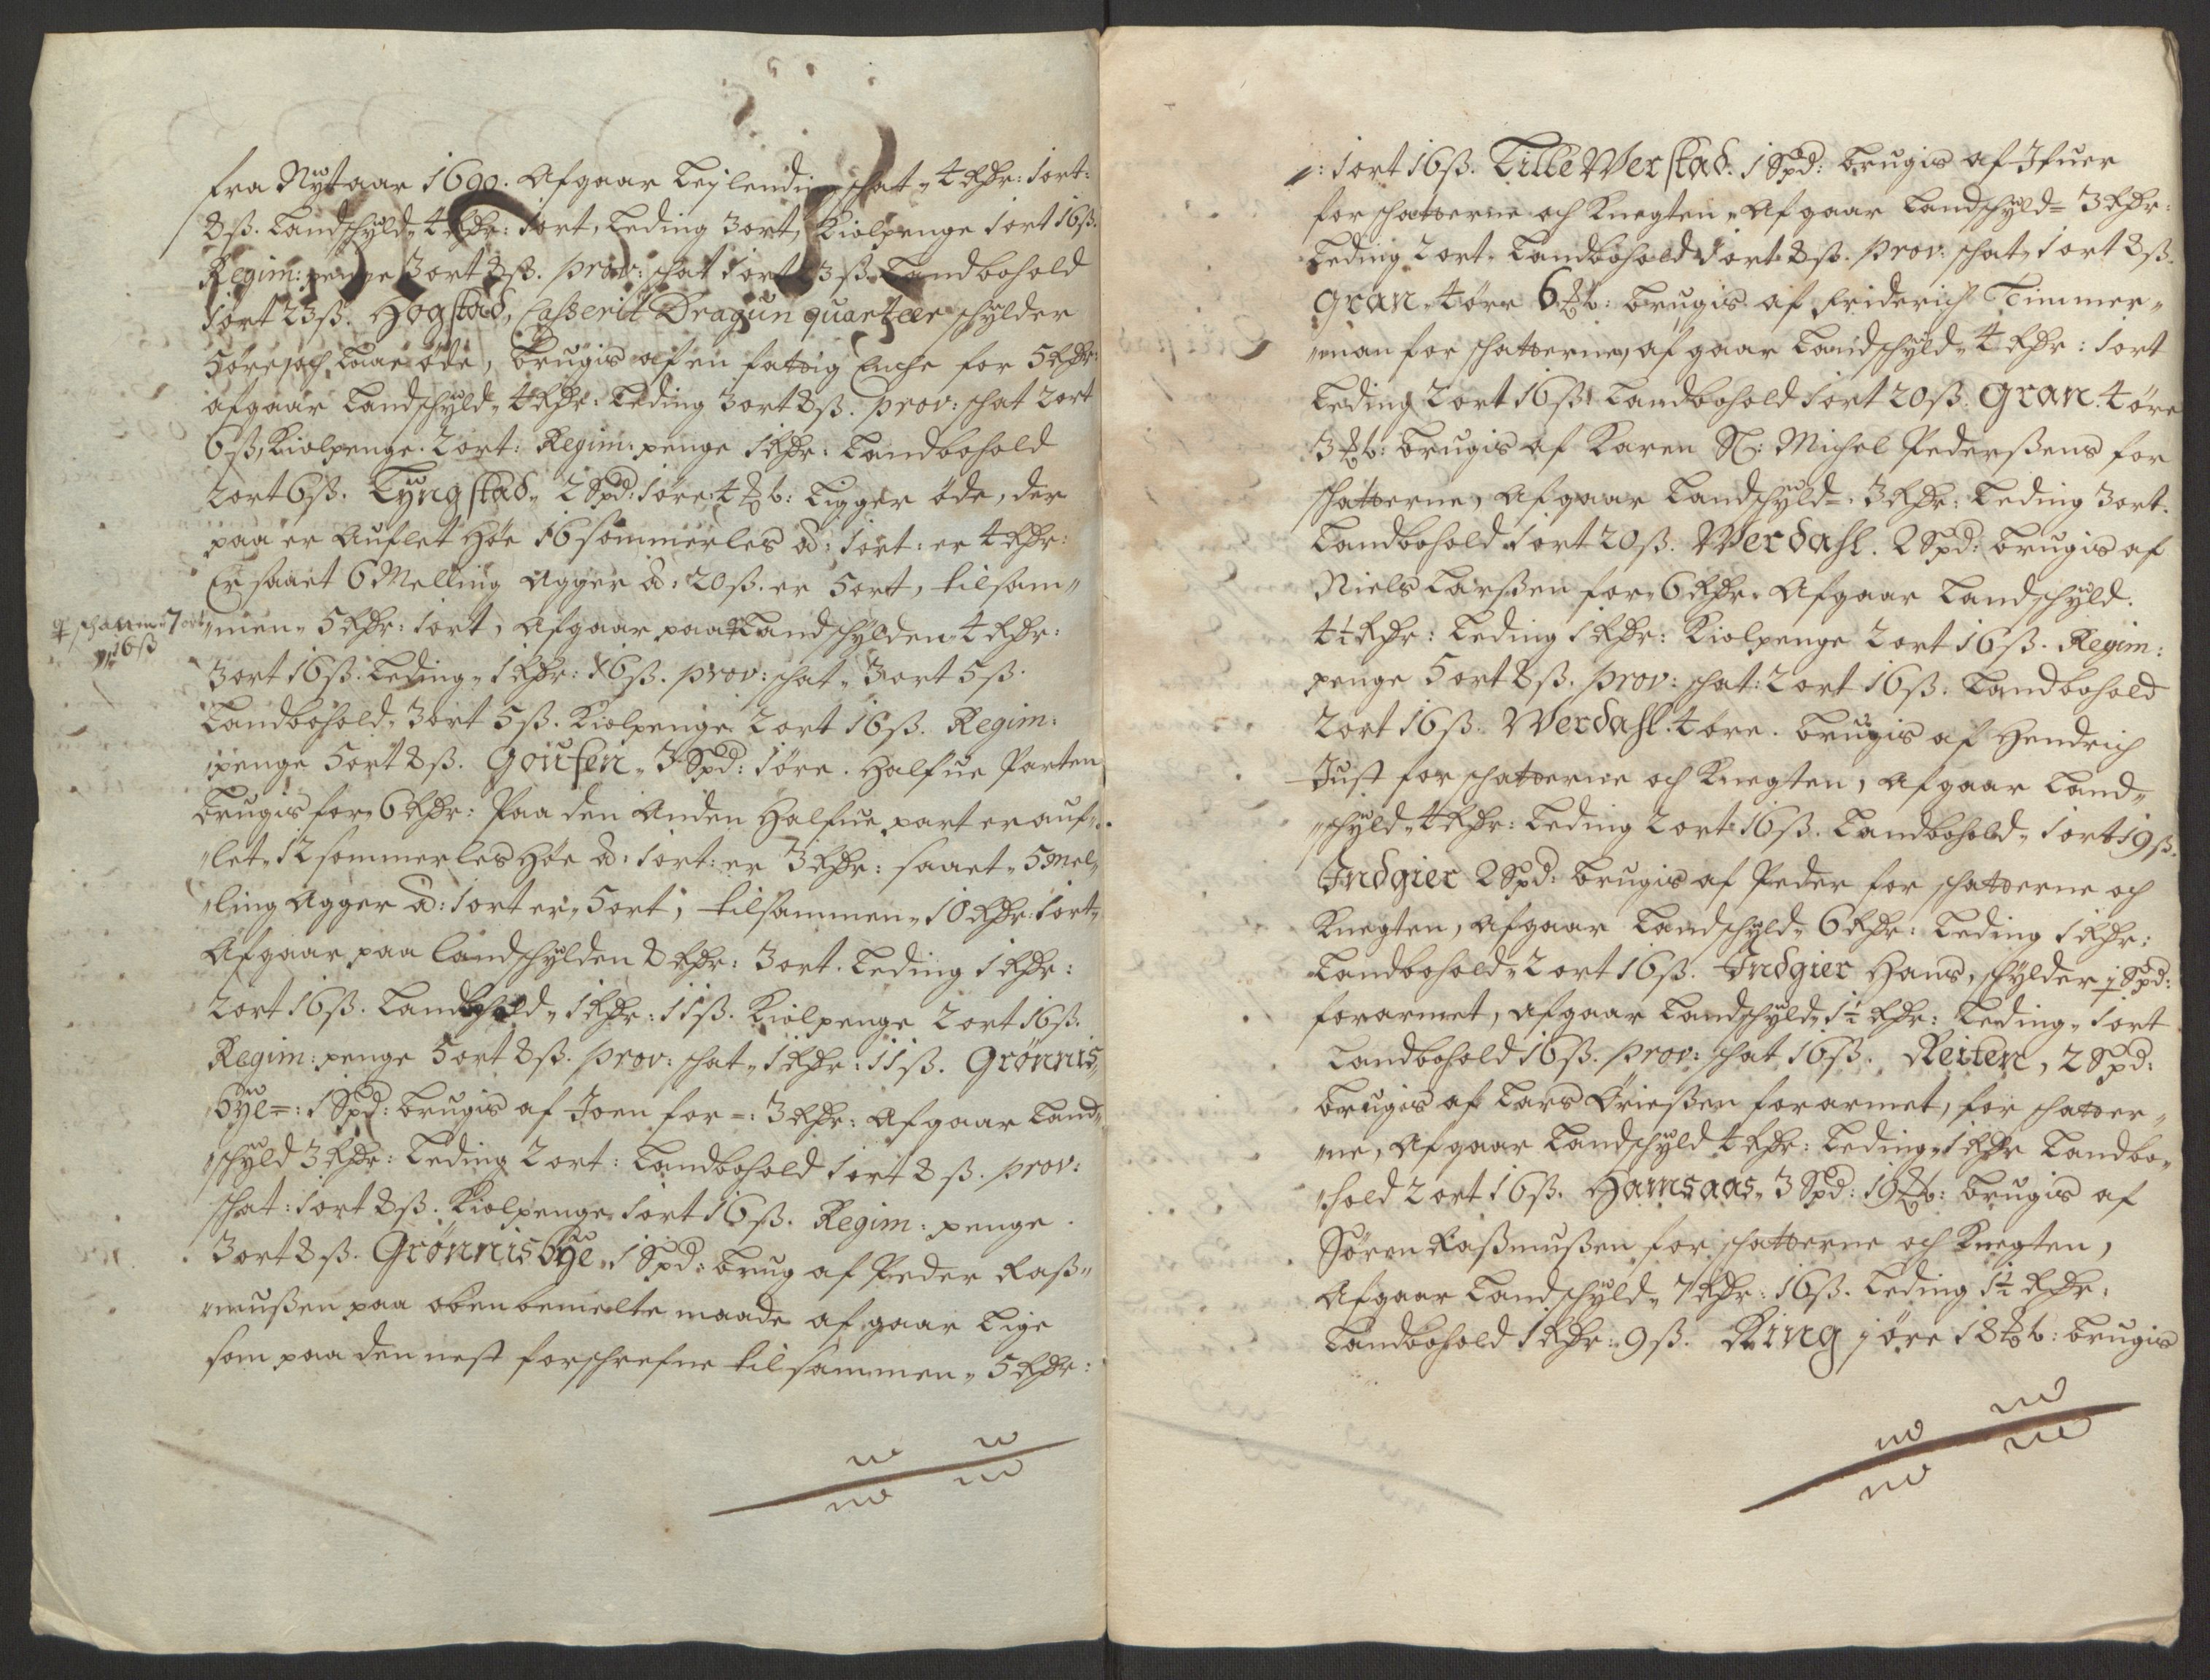 fra Nytaar 1690. Afgaar Leylending schat „ 4 Rdr: 1 ort:
8 ß. Landschyld „ 4 Rdr: 1 ort, Leding 3 ort, Kiolpenge 1 ort 16 ß.
Regim: penge 3 ort 8 ß. prov: schat 1 ort 23 ß. Landbohold
1 ort 23 ß. Hogstad, Casserit Dragun quarteer schylder
5 øre, och øde, brugis af en fattig Enche for 5 Rdr:
afgaar Landschyld „ 4 Rdr: Leding 3 ort 8 ß. prov: schat 2 ort
6 ß, Kiolpenge. 2 ort: Regim: penge 1 Rdr: Landbohold
2 ort 6 ß. Lyngstad „ 2 Spd: 1 øre: 4 ℔: Ligger øde, der
paa er Auflet Høe 16 sommerles â: 1 ort: er 4 Rdr:
Er saaet 6 Melling Agger â: 20 ß. er 5 ort, tilsam„
„men „ 5 Rdr: 1 ort, Afgaar paa Landschylden „ 4 Rdr:
schatterne 7 ort
16 ß
3 ort 16 ß. Leding „ 1 Rdr: 16 ß. prov: schat „ 3 ort 5 ß.
Landbohold „ 3 ort 5 ß. Kiolpenge 2 ort 16 ß. Regim:
penge 5 ort 8 ß. Gousen „ 3 Spd: 1 øre. Halfue Parten
brugis for „ 6 Rdr: Paa den Anden Halfue part er auf„
„let „ 12 sommerles Høe â: 1 ort: er 3 Rdr: saaet „ 5 Mel„
„ling Agger â: 1 ort er „ 5 ort, tilsammen „ 10 Rdr: 1 ort „
Afgaar paa Landschylden 8 Rdr: 3 ort. Leding 1 Rdr:
2 ort 16 ß. Landbohold „ 1 Rdr: 11 ß. Kiolpenge 2 ort 16 ß.
Regim: penge 5 ort 8 ß. prov: schat „ 1 Rdr: 11 ß. Grønnis„
bye =: 1 Spd: brugis af Joen for =: 3 Rdr: Afgaar Land„
„schyld 3 Rdr: Leding 2 ort: Landbohold 1 ort 8 ß. prov:
schat: 1 ort 8 ß. Kiolpenge 1 ort 16 ß. Regim: penge
3 ort 8 ß. Grønnisbye „ 1 Spd: brug af Peder Raß„
„mußen paa obenbemelte maade afgaar Lige
som paa den nest forschrefne tilsammen „ 5 Rdr:
: 1 ort 16 ß. Lille Werstad. 1 Spd: brugis af Ifuer
for schatterne och Knegten „ Afgaar Landschyld = 3 Rdr:
Leding 2 ort „ Landbohold 1 ort 8 ß. prov: schat „ 1 ort 8 ß.
Gran. 4 øre 6 ℔: brugis af Friderich Timmer„
„man for schatterne, afgaar Landschyld „ 4 Rdr: 1 ort
Leding 2 ort 16 ß: Landbohold 1 ort 20 ß. Gran. 4 øre
3 ℔: brugis af Karen Sl: Michel Pederßens for
schatterne, Afgaar Landschyld =: 3 Rdr: Leding 3 ort.
Landbohold 1 ort 20 ß. Werdahl. 2 Spd: brugis af
Niels Larßen for „ 6 Rdr. Afgaar Landschyld.
4½ Rdr: Leding 1 Rdr: Kiolpenge 2 ort 16 ß. Regim:
penge 5 ort 8 ß. prov: schat: 2 ort 16 ß. Landbohold
2 ort 16 ß. Werdahl. 4 øre. brugis af Hendrich
Just for schatterne och Knegten, Afgaar Land„
„schyld „ 4 Rdr: Leding 2 ort 16 ß. Landbohold „ 1 ort 19 ß.
Indgier 2 Spd: brugis af Peder for schatterne och
Knegten, Afgaar Landschyld „ 6 Rdr: Leding 1 Rdr:
Landbohold „ 2 ort 16 ß. Indgier Hans, schylder ½ Spd:
forarmet, Afgaar Landschyld „ 1½ Rdr: Leding „ 1 ort
Landbohold 16 ß. prov: schat 16 ß. Reiten, 2 Spd:
brugis af Lars Brießen forarmet, for schatter„
„ne, Afgaar Landschyld 4 Rdr: Leding „ 1 Rdr Landbo„
„hold 2 ort 16 ß. Hamsaas „ 3 Spd: 19 ℔: brugis af
Søren Raßmußen for schatterne och Knegten,
Afgaar Landschyld „ 7 Rdr: 16 ß. Leding 1½ Rdr.
Landbohold 1 Rdr: 9 ß. Ring 1 øre 18 ℔: brugis